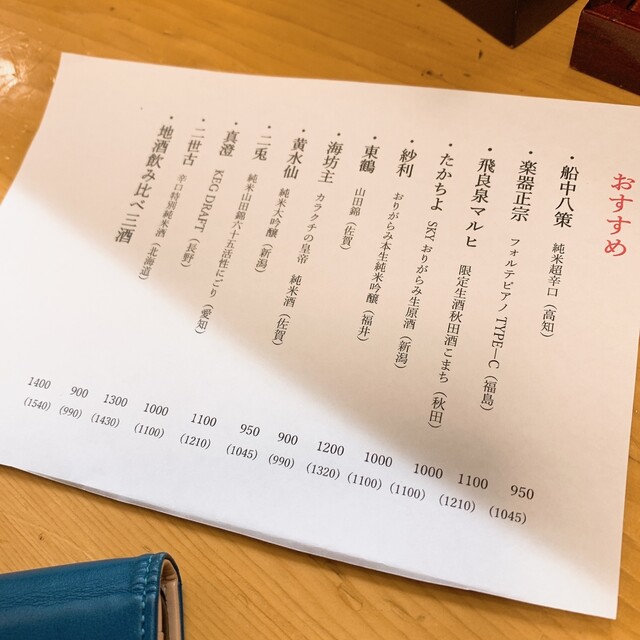 おすすめ
・船中八策 純米超辛口（高知） 950 (1045)
・楽器正宗 フォルテピアノ TYPE―C（福島） 1100 (1210)
・飛良泉マルヒ 限定生酒秋田酒こまち（秋田） 1000 (1100)
・たかちよ SKY おりがらみ生原酒（新潟） 1000 (1100)
・紗利 おりがらみ本生純米吟醸（福井） 1200 (1320)
・東鶴 山田錦（佐賀） 900 (990)
・海坊主 カラクチの皇帝 純米酒（佐賀） 950 (1045)
・黄水仙 純米大吟醸（新潟） 1100 (1210)
・二兎 純米山田錦六十五活性にごり（愛知） 1000 (1100)
・真澄 KEG DRAFT（長野） 1300 (1430)
・二世古 辛口特別純米酒（北海道） 900 (990)
・地酒飲み比べ三酒 1400 (1540)